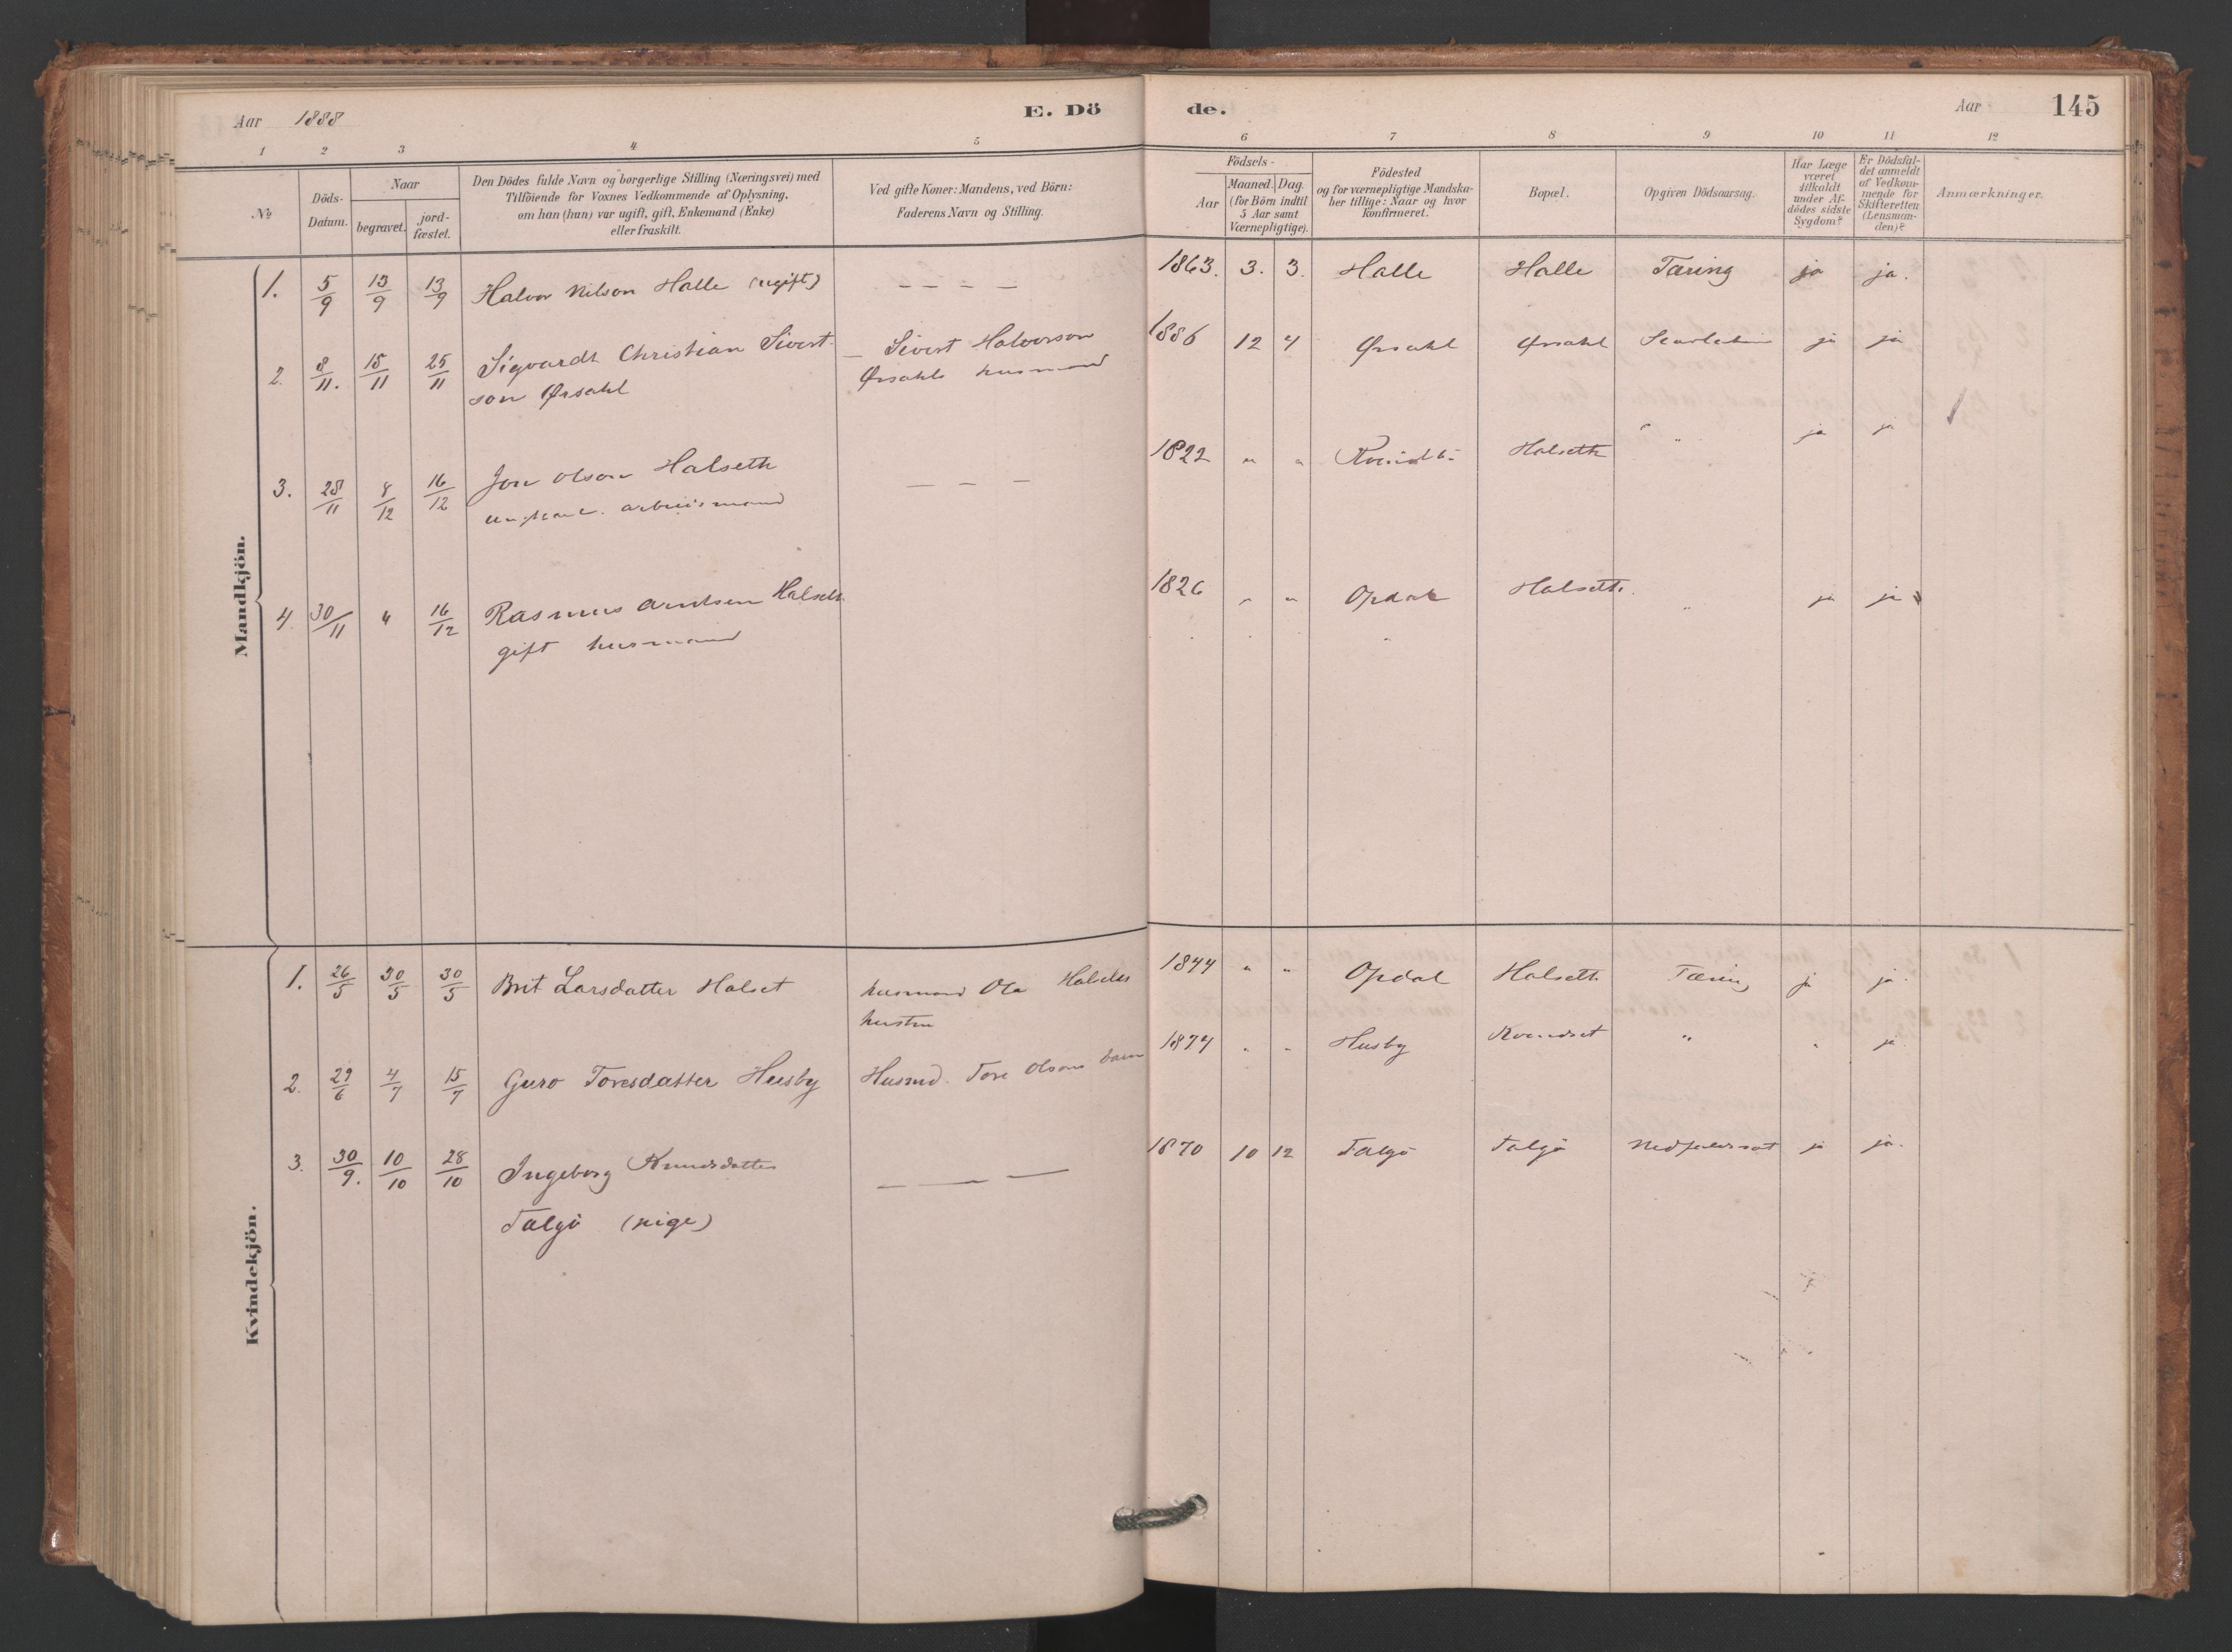 Aar 1888 E. Dö
de. Aar 145
1 2 3 4 5 6 7 8 9 10 11 12
№
Döds-
Datum.
Naar
begravet.
jord-
fæstet.
Den Dödes fulde Navn og borgerlige Stilling (Næringsvei) med
Tilföiende for Voxnes Vedkommende af Oplysning,
om han (hun) var ugift, gift, Enkemand (Enke)
eller fraskilt.
Ved gifte Koner: Mandens, ved Börn:
Faderens Navn og Stilling.
Födsels-
Aar
Maaned. Dag.
(for Börn indtil
5 Aar samt
Værnepligtige).
Födested
og for værnepligtige Mandska-
ber tillige: Naar og hvor
konfirmeret.
Bopæl.
Opgiven Dödsaarsag.
Har Læge
været
tilkaldt
under Af-
dödes sidste
Sygdom?
Er Dödsfal-
det anmeldt
af Vedkom-
mende for
Skifteretten
(Lensman-
den)?
Anmærkninger.
Mandkjön.
1. 5/9 13/9 13/9 Halvor Nilson Halle (ugift) — — — — 1863. 3. 3. Halle Halle Tæring ja ja.
2. 8/11. 15/11 25/11 Sigvardt Christian Sivert- — Sivert Halvorson 1886 12 4 Ørsahl Ørsahl ja ja
son Ørsahl Ørsahls husmand
3. 28/11 8/12 16/12 Jon Olson Halseth — — — 1822 " " Halseth " ja ja
4. 30/11 " 16/12 Rasmus Arntsen Halseth 1826 " " Opdal Halseth. " ja ja
gift husmand
Kvindekjön.
1. 26/5 30/5 30/5 Brit Larsdatter Halset husmand Ola Halseths 1844 " " Opdal Halseth Tæring ja ja.
hustru
2. 29/6 4/7 15/7 Guro Toresdatter Husby Husmd. Tore Olsons barn 1874 " " Husby Kvendset " " ja.
3. 30/9. 10/10 28/10 Ingeborg Knudsdatter — — — 1870 10 12 Talgö Talgö ja ja.
Talgö (pige)